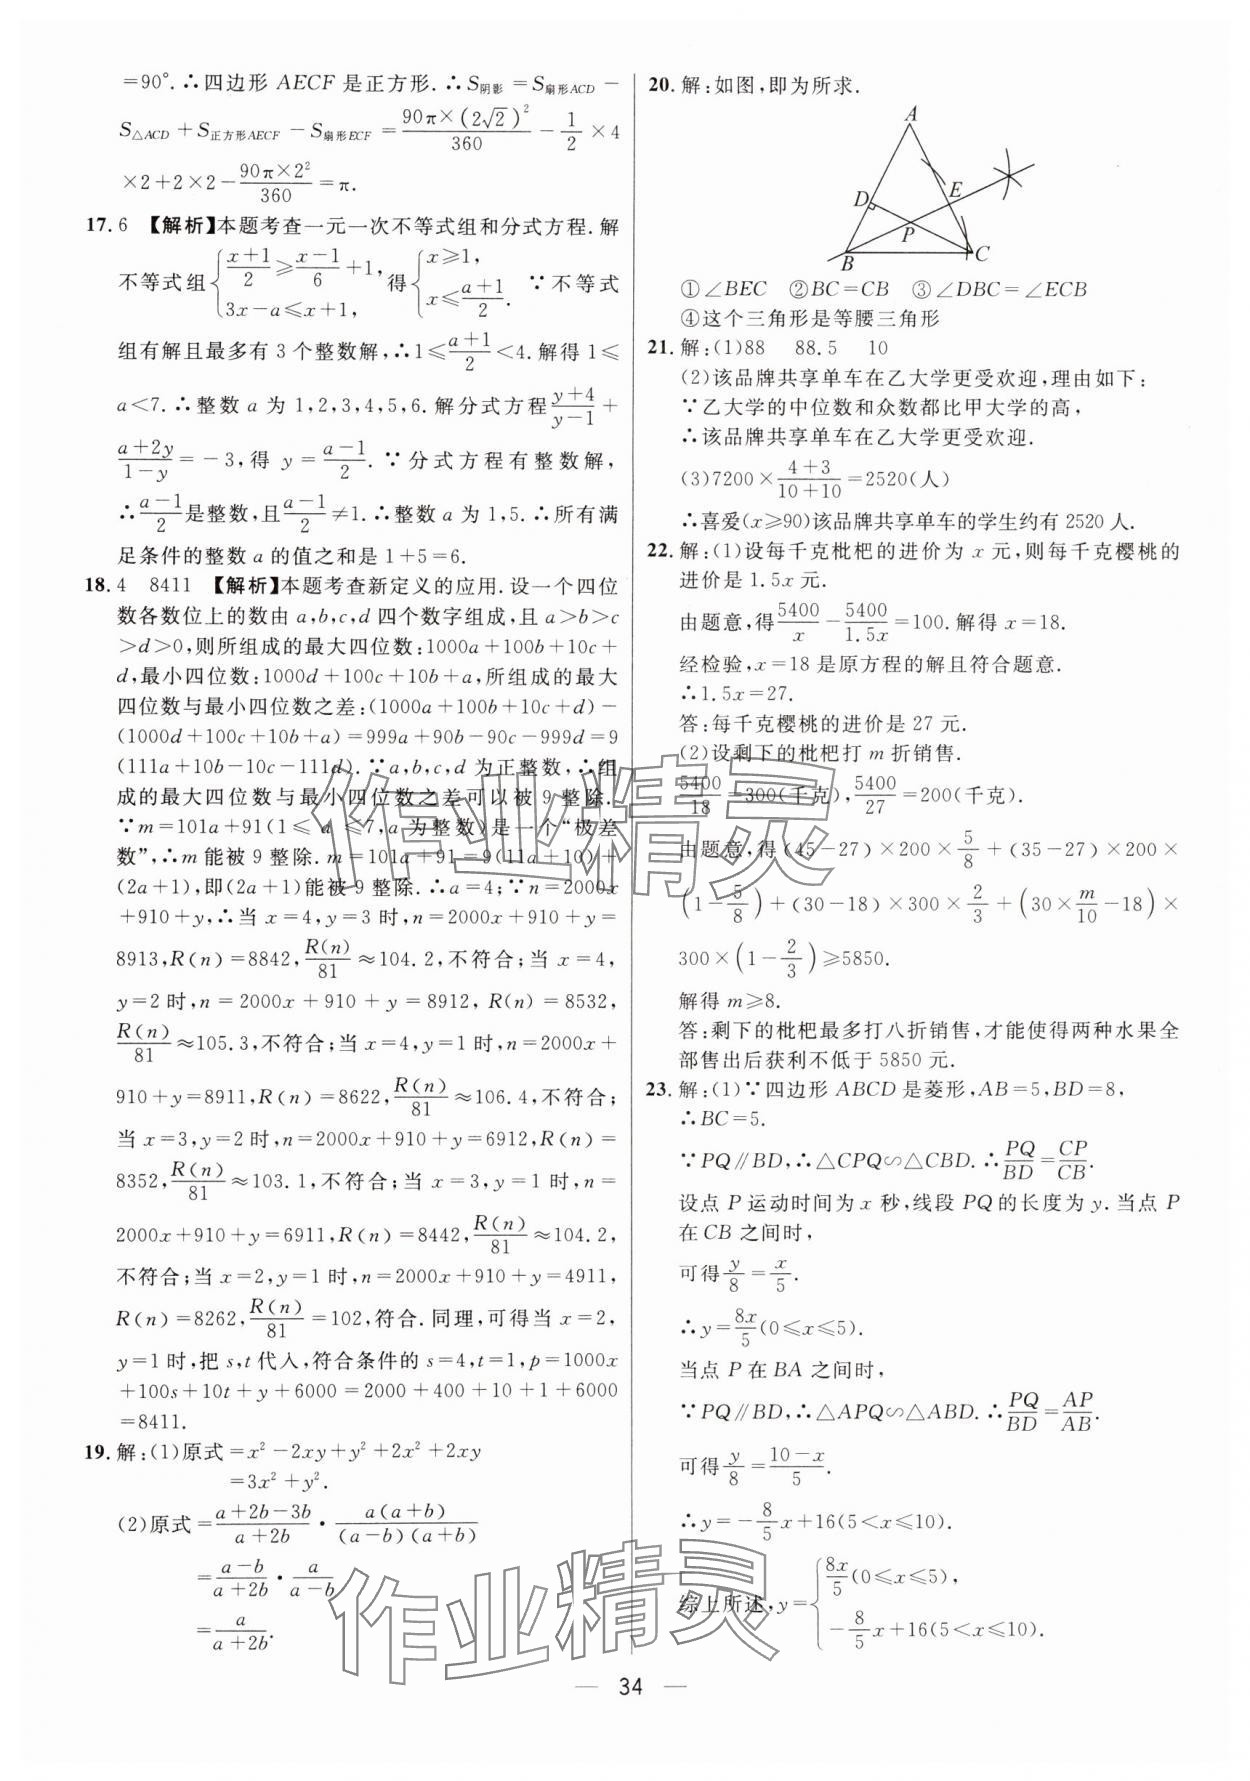 =90°.∴四边形 AECF 是正方形.∴S阴影=S扇形ACD−
S△ACD+S正方形AECF−S扇形ECF=90π×(2√2)²/360−1/2×4
×2+2×2−90π×2²/360=π.
17. 6 【解析】本题考查一元一次不等式组和分式方程.解
不等式组{(x+1)/2≥(x−1)/6+1, 3x−a≤x+1, 得{x≥1, x≤(a+1)/2. ∵不等式
组有解且最多有 3 个整数解,∴1≤(a+1)/2<4.解得 1≤
a<7.∴整数 a 为 1,2,3,4,5,6.解分式方程(y+4)/(y−1)+
(a+2y)/(1−y)=−3,得 y=(a−1)/2.∵分式方程有整数解,
∴(a−1)/2是整数,且(a−1)/2≠1.∴整数 a 为 1,5.∴所有满
足条件的整数 a 的值之和是 1+5=6.
18. 4 8411 【解析】本题考查新定义的应用.设一个四位
数各数位上的数由 a,b,c,d 四个数字组成,且 a>b>c
>d>0,则所组成的最大四位数:1000a+100b+10c+
d,最小四位数:1000d+100c+10b+a,所组成的最大
四位数与最小四位数之差:(1000a+100b+10c+d)−
(1000d+100c+10b+a)=999a+90b−90c−999d=9
(111a+10b−10c−111d).∵a,b,c,d 为正整数,∴组
成的最大四位数与最小四位数之差可以被 9 整除.
∵m=101a+91(1≤a≤7,a 为整数)是一个“极差
数”,∴m 能被 9 整除.m=101a+91=9(11a+10)+
(2a+1),即(2a+1)能被 9 整除.∴a=4;∵n=2000x
+910+y,∴当 x=4,y=3 时,n=2000x+910+y=
8913,R(n)=8842,R(n)/81≈104.2,不符合;当 x=4,
y=2 时,n=2000x+910+y=8912,R(n)=8532,
R(n)/81≈105.3,不符合;当 x=4,y=1 时,n=2000x+
910+y=8911,R(n)=8622,R(n)/81≈106.4,不符合;
当 x=3,y=2 时,n=2000x+910+y=6912,R(n)=
8352,R(n)/81≈103.1,不符合;当 x=3,y=1 时,n=
2000x+910+y=6911,R(n)=8442,R(n)/81≈104.2,
不符合;当 x=2,y=1 时,n=2000x+910+y=4911,
R(n)=8262,R(n)/81=102,符合.同理,可得当 x=2,
y=1 时,把 s,t 代入,符合条件的 s=4,t=1,p=1000x
+100s+10t+y+6000=2000+400+10+1+6000
=8411.
19. 解:(1)原式=x²−2xy+y²+2x²+2xy
=3x²+y².
(2)原式=(a+2b−3b)/(a+2b)·a(a+b)/(a−b)(a+b)
=(a−b)/(a+2b)·a/(a−b)
=a/(a+2b).
20. 解:如图,即为所求.
A
D
E
P
B
C
①∠BEC ②BC=CB ③∠DBC=∠ECB
④这个三角形是等腰三角形
21. 解:(1)88 88.5 10
(2)该品牌共享单车在乙大学更受欢迎,理由如下:
∵乙大学的中位数和众数都比甲大学的高,
∴该品牌共享单车在乙大学更受欢迎.
(3)7200×(4+3)/(10+10)=2520(人)
∴喜爱(x≥90)该品牌共享单车的学生约有 2520 人.
22. 解:(1)设每千克枇杷的进价为 x 元,则每千克樱桃的
进价是 1.5x 元.
由题意,得5400/x−5400/1.5x=100.解得 x=18.
经检验,x=18 是原方程的解且符合题意.
∴1.5x=27.
答:每千克樱桃的进价是 27 元.
(2)设剩下的枇杷打 m 折销售.
5400/18=300(千克),5400/27=200(千克).
由题意,得(45−27)×200×5/8+(35−27)×200×
(1−5/8)+(30−18)×300×2/3+(30×m/10−18)×
300×(1−2/3)≥5850.
解得 m≥8.
答:剩下的枇杷最多打八折销售,才能使得两种水果全
部售出后获利不低于 5850 元.
23. 解:(1)∵四边形 ABCD 是菱形,AB=5,BD=8,
∴BC=5.
∵PQ∥BD,∴△CPQ∽△CBD.∴PQ/BD=CP/CB.
设点 P 运动时间为 x 秒,线段 PQ 的长度为 y.当点 P
在 CB 之间时,
可得y/8=x/5.
∴y=8x/5(0≤x≤5).
当点 P 在 BA 之间时,
∵PQ∥BD,∴△APQ∽△ABD.∴PQ/BD=AP/AB.
可得y/8=(10−x)/5.
∴y=−8/5x+16(5<x≤10).
综上所述,y={8x/5(0≤x≤5), −8/5x+16(5<x≤10).
— 34 —
作业精灵
作业精灵